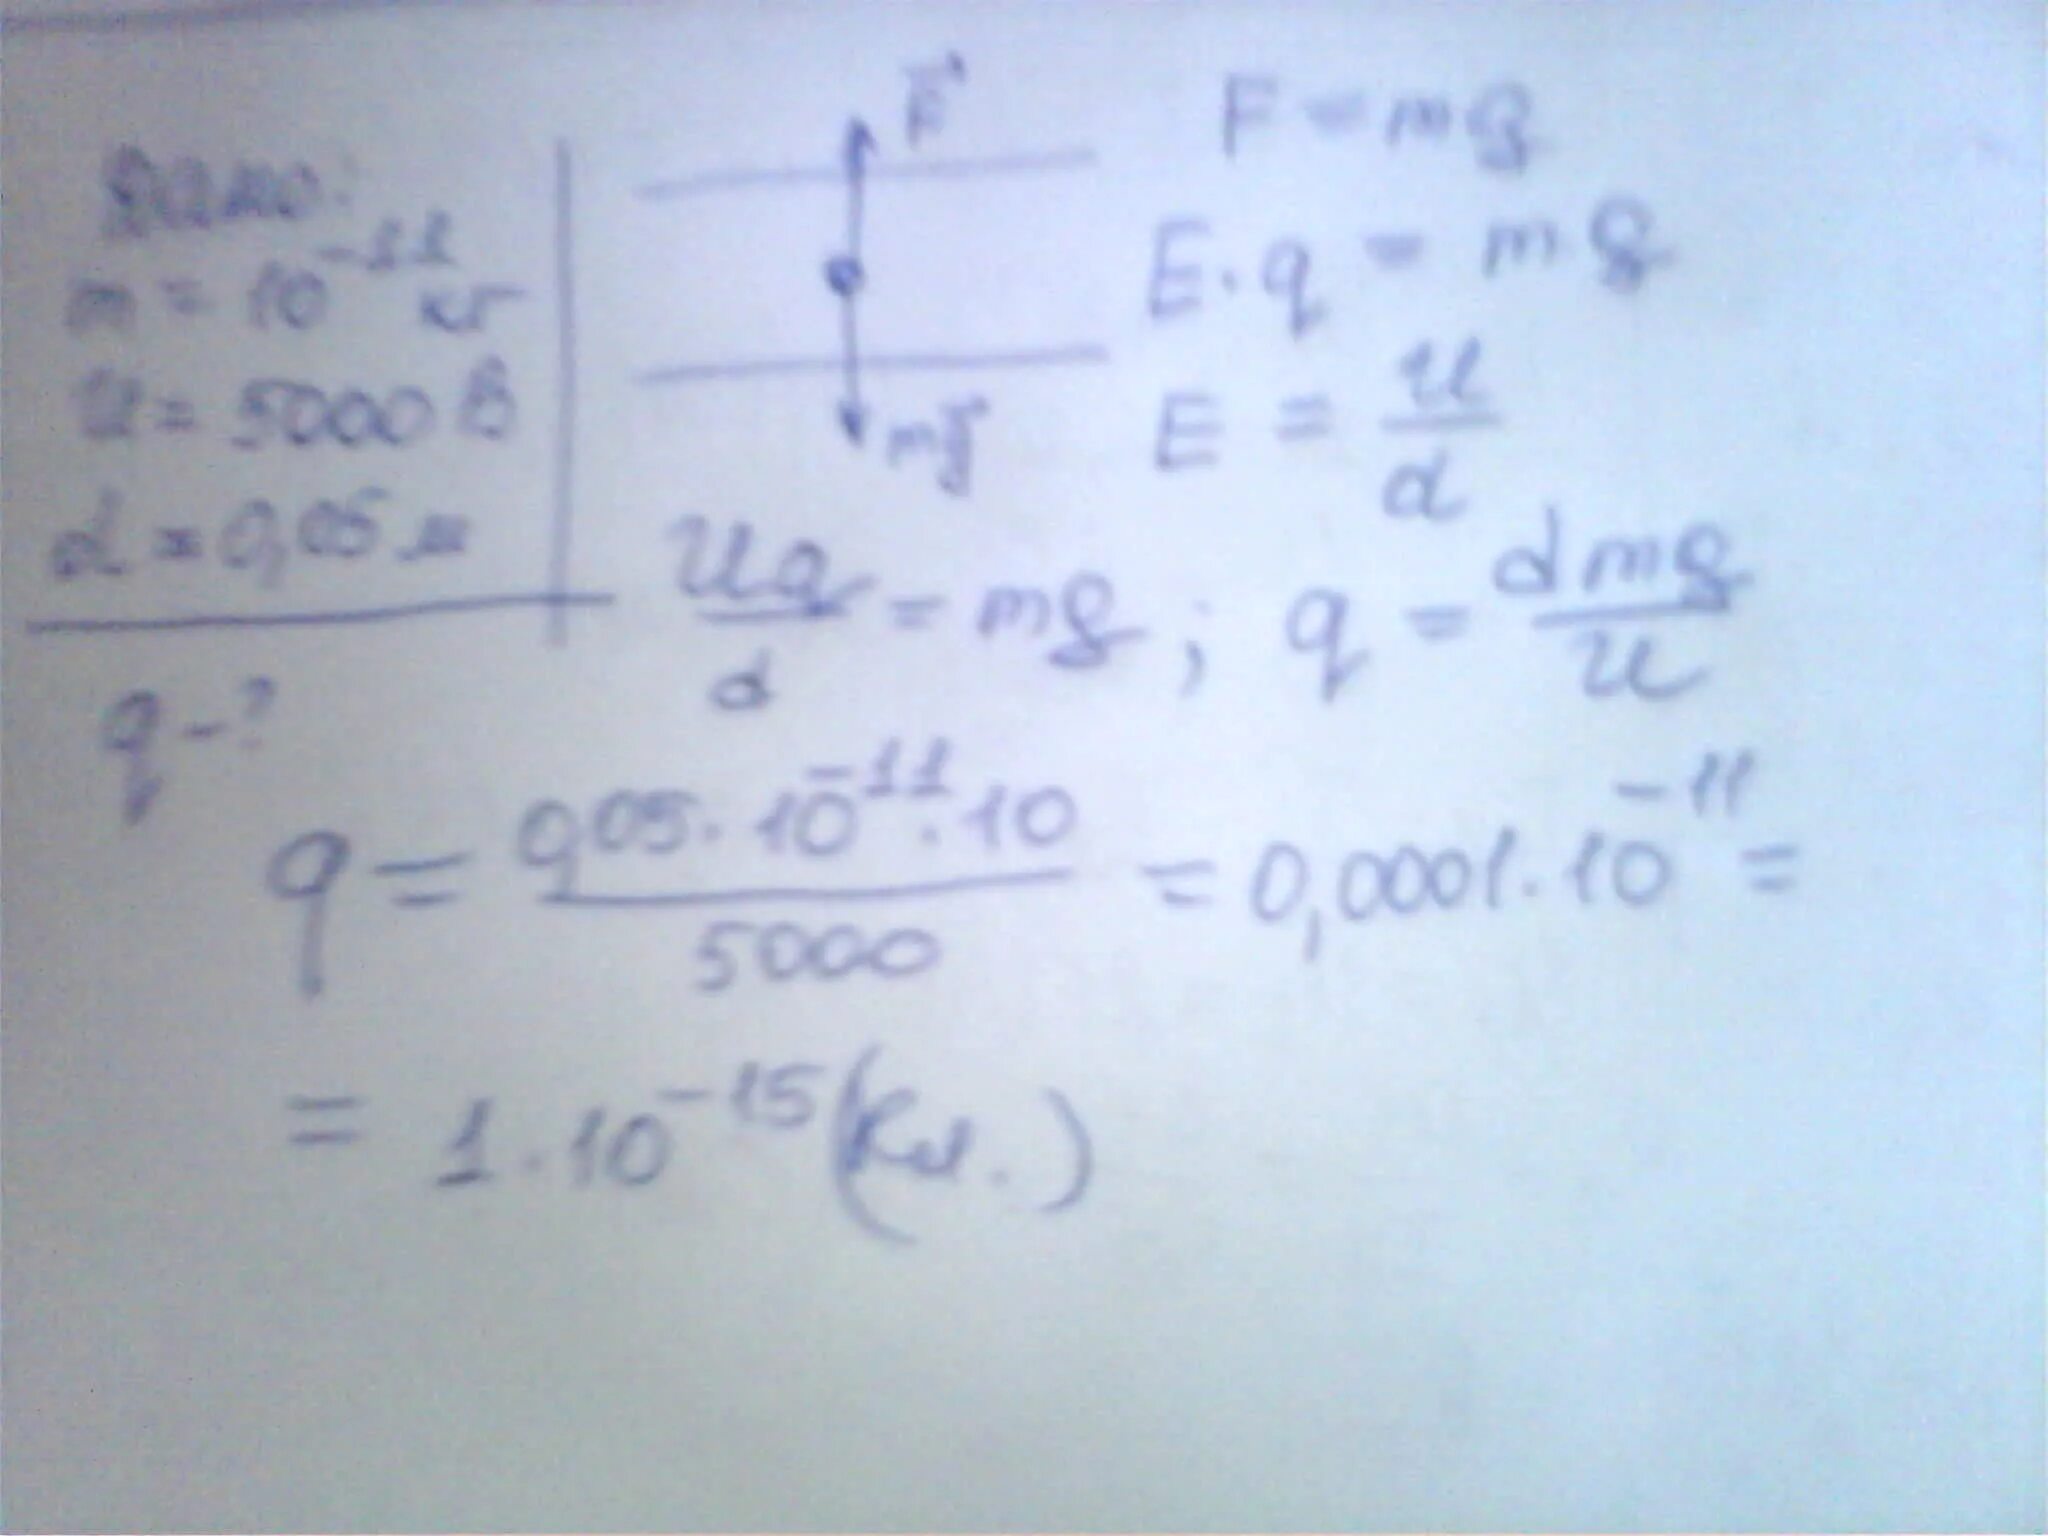 Дано:
m = 10⁻¹¹ кг
U = 5000 В
d = 0,05 м
q - ?
F
mg
F = mg
E · q = mg
E = U/d
Uq/d = mg ; q = dmg/U
q = 0,05 · 10⁻¹¹ · 10 / 5000 = 0,0001 · 10⁻¹¹ =
= 1 · 10⁻¹⁵ (Кл.)